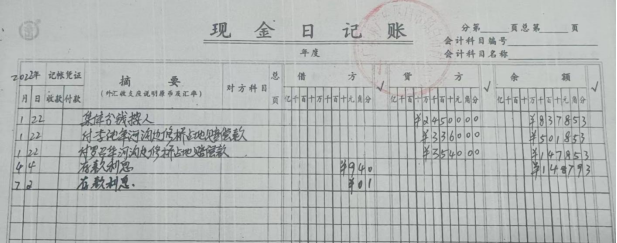 现金日记账
分第 页总第 页
会计科目编号
会计科目名称
年度
2022年 记帐凭证 摘要 对方科目 总页 借方 √ 贷方 √ 余额 √
月 日 收款 付款 (外汇收支应说明原币及汇率) 亿千百十万千百十元角分 亿千百十万千百十元角分 亿千百十万千百十元角分
1 22 ¥2450000 ¥837853
1 22 付 年河沟边修桥占地赔偿款 ¥336000 ¥501853
1 22 付 年河沟边修桥占地赔偿款 ¥354000 ¥147853
4 4 存款利息 ¥940 ¥148793
7 2 存款利息 ¥01